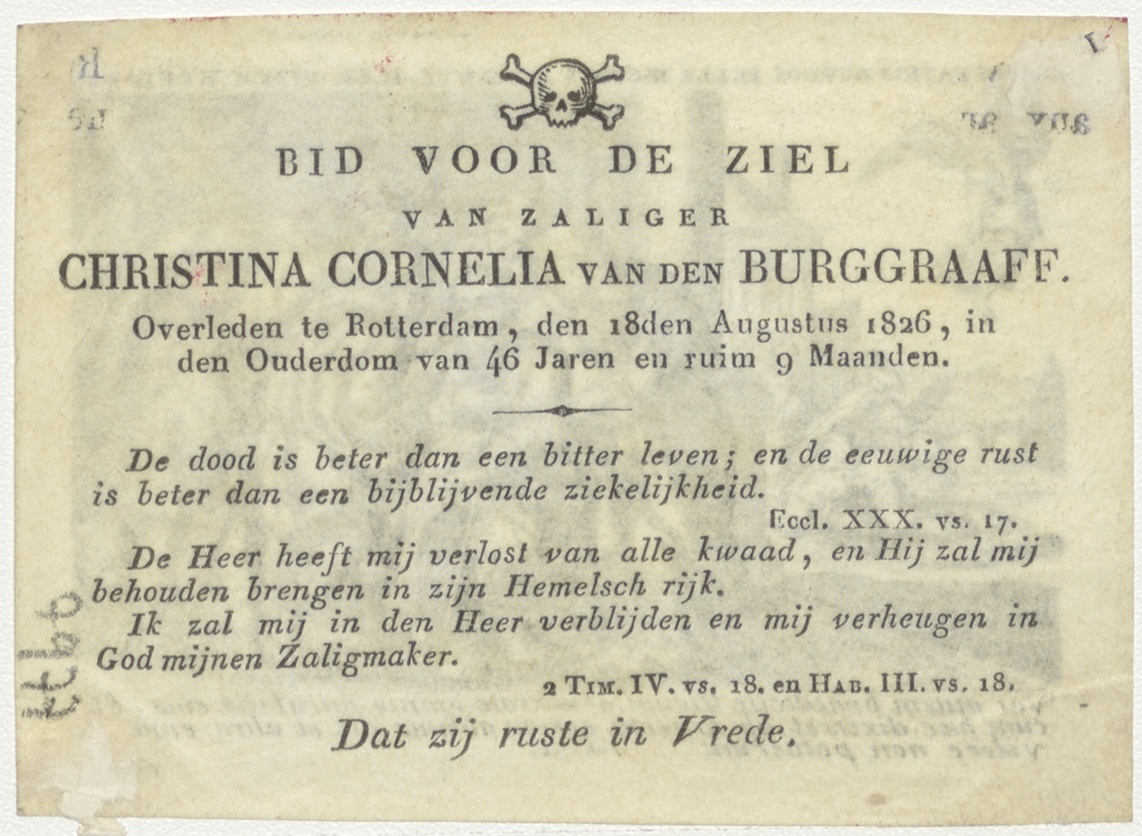 BID VOOR DE ZIEL
VAN ZALIGER
CHRISTINA CORNELIA VAN DEN BURGGRAAFF.
Overleden te Rotterdam, den 18den Augustus 1826, in
den Ouderdom van 46 Jaren en ruim 9 Maanden.
De dood is beter dan een bitter leven; en de eeuwige rust
is beter dan een bijblijvende ziekelijkheid.
Eccl. XXX. vs. 17.
De Heer heeft mij verlost van alle kwaad, en Hij zal mij
behouden brengen in zijn Hemelsch rijk.
Ik zal mij in den Heer verblijden en mij verheugen in
God mijnen Zaligmaker.
2 TIM. IV. vs. 18. en HAB. III. vs. 18.
Dat zij ruste in Vrede.